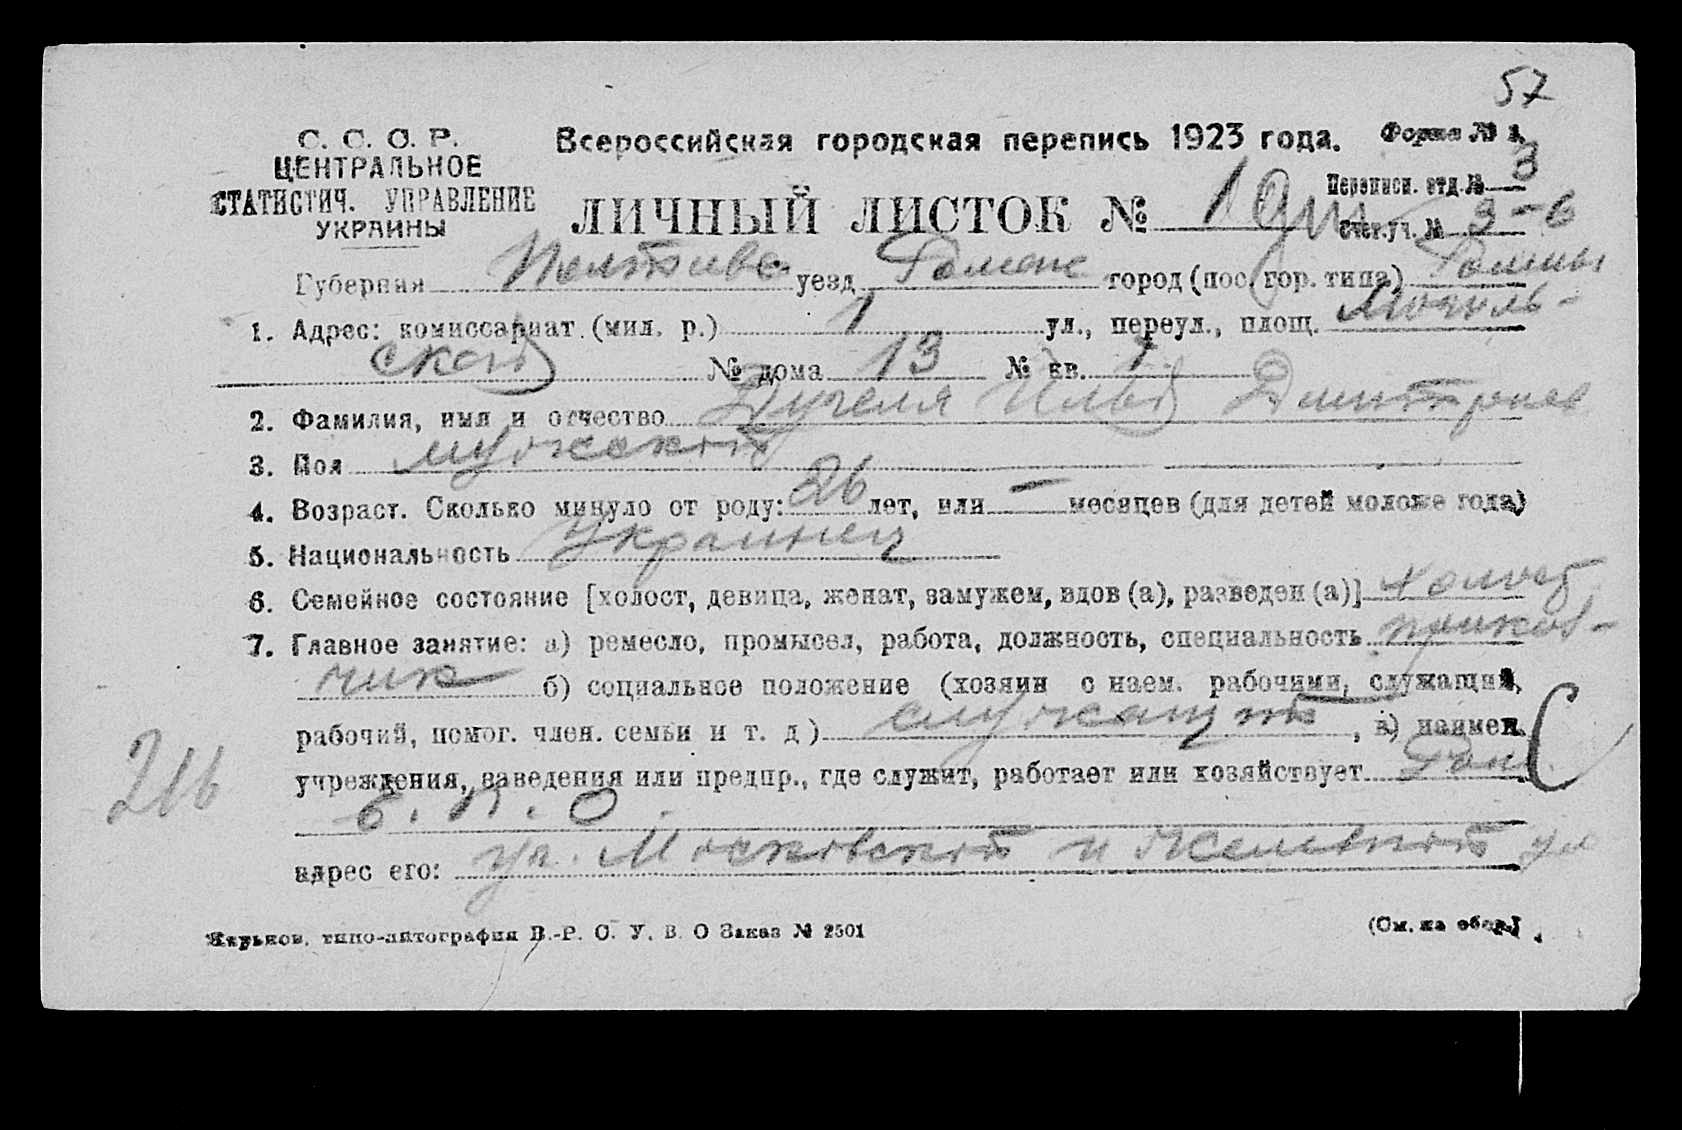 57
С. С. С. Р.
ЦЕНТРАЛЬНОЕ
СТАТИСТИЧ. УПРАВЛЕНИЕ
УКРАИНЫ
Всероссийская городская перепись 1923 года. Форма № 1.
Переписн. отд. № 3
ЛИЧНЫЙ ЛИСТОК № 1 Счет.уч. № 3-6
Губерния Полтавс уезд Роменс город (пос. гор. типа) Ромны
1. Адрес: комиссариат (мил. р.) 1 ул., переул., площ.
ская № дома 13 № кв. 1
2. Фамилия, имя и отчество Илья Дмитриев
3. Пол мужской
4. Возраст. Сколько минуло от роду: 26 лет, или — месяцев (для детей моложе года)
5. Национальность Украинец
6. Семейное состояние [холост, девица, женат, замужем, вдов (а), разведен (а)] холост
7. Главное занятие: а) ремесло, промысел, работа, должность, специальность приказ-
чик б) социальное положение (хозяин с наем. рабочими, служащий,
рабочий, помог. член. семьи и т. д) служащий, в) наимен.
С
216
учреждения, заведения или предпр., где служит, работает или хозяйствует Ром.
Е. П. О.
адрес его: уг. Московской и ул
Харьков, типо-литография В.-Р. С. У. В. О Заказ № 2501
(См. на обор.)